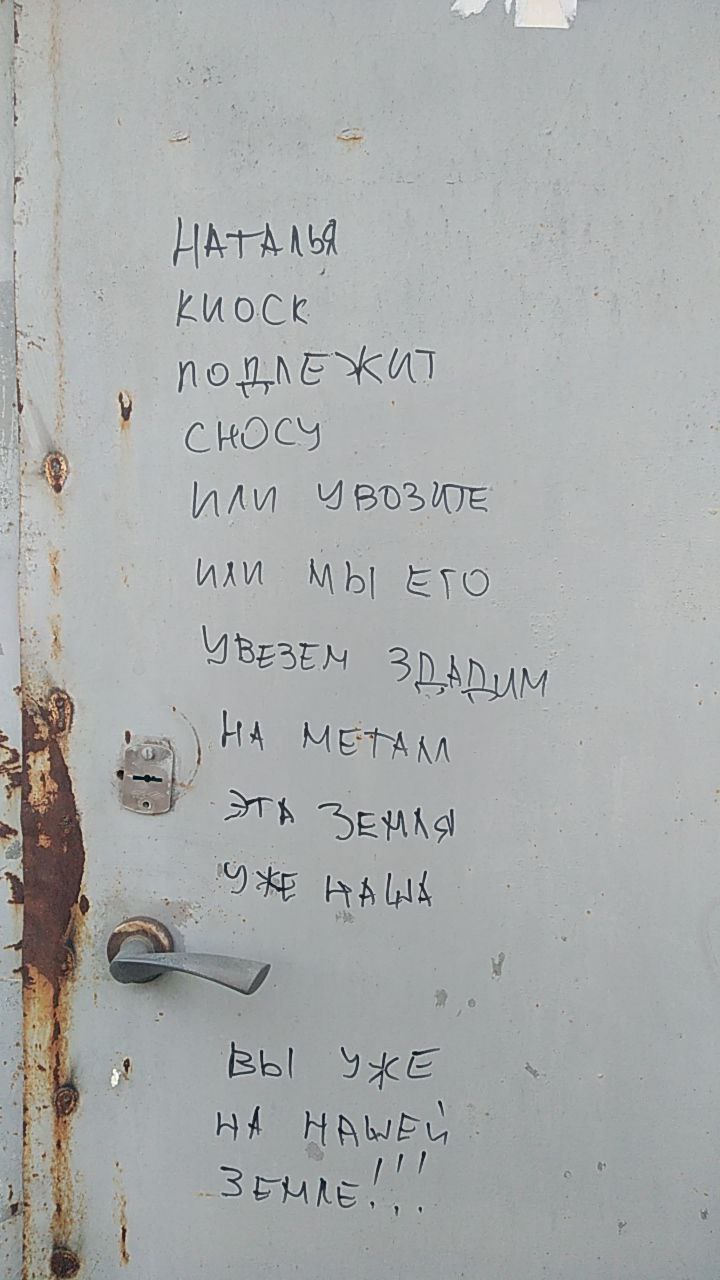 НАТАЛЬЯ
КИОСК
ПОДЛЕЖИТ
СНОСУ
ИЛИ УВОЗИТЕ
ИЛИ МЫ ЕГО
УВЕЗЕМ ЗДАДИМ
НА МЕТАЛ
ЭТА ЗЕМЛЯ
УЖЕ НАША
ВЫ УЖЕ
НА НАШЕЙ
ЗЕМЛЕ!!!